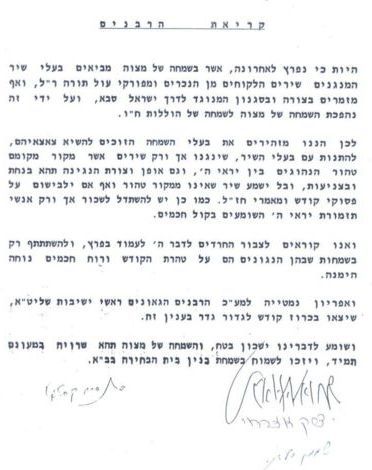 קריאת הרבנים
היות כי נפרץ לאחרונה, אשר בשמחה של מצוה מביאים בעלי שיר
המנגנים שירים הלקוחים מן הנכרים ומפורקי עול תורה ר"ל, ואף
מזמרים בצורה ובסגנון המנוגד לדרך ישראל סבא, ועל ידי זה
נהפכת השמחה של מצוה לשמחה של הוללות ח"ו.
לכן הננו מזהירים את בעלי השמחה הזוכים להשיא צאצאיהם,
להתנות עם בעלי השיר, שינגנו אך ורק שירים אשר מקור מקומם
טהור הנהוגים בין יראי ה', וגם אופן וצורת הנגינה תהא בנחת
ובצניעות, ובל ישמע שיר שאינו ממקור טהור ואף אם ילבישום על
פסוקי קודש ומאמרי חז"ל. כמו כן יש להשתדל לשכור אך ורק אנשי
תזמורת יראי ה' השומעים בקול חכמים.
ואנו קוראים לצבור החרדים לדבר ה' לעמוד בפרץ, ולהשתתף רק
בשמחות שבהן הנגונים הם על טהרת הקודש ורוח חכמים נוחה
הימנה.
ואפריון נמטייה למע"כ הרבנים הגאונים ראשי ישיבות שליט"א,
שיצאו בכרוז קודש לגדור גדר בענין זה.
ושומע לדברינו ישכון בטח, והשמחה של מצוה תהא שרויה במעונם
תמיד, ויזכו לשמוח בשמחת בנין בית הבחירה בב"א.